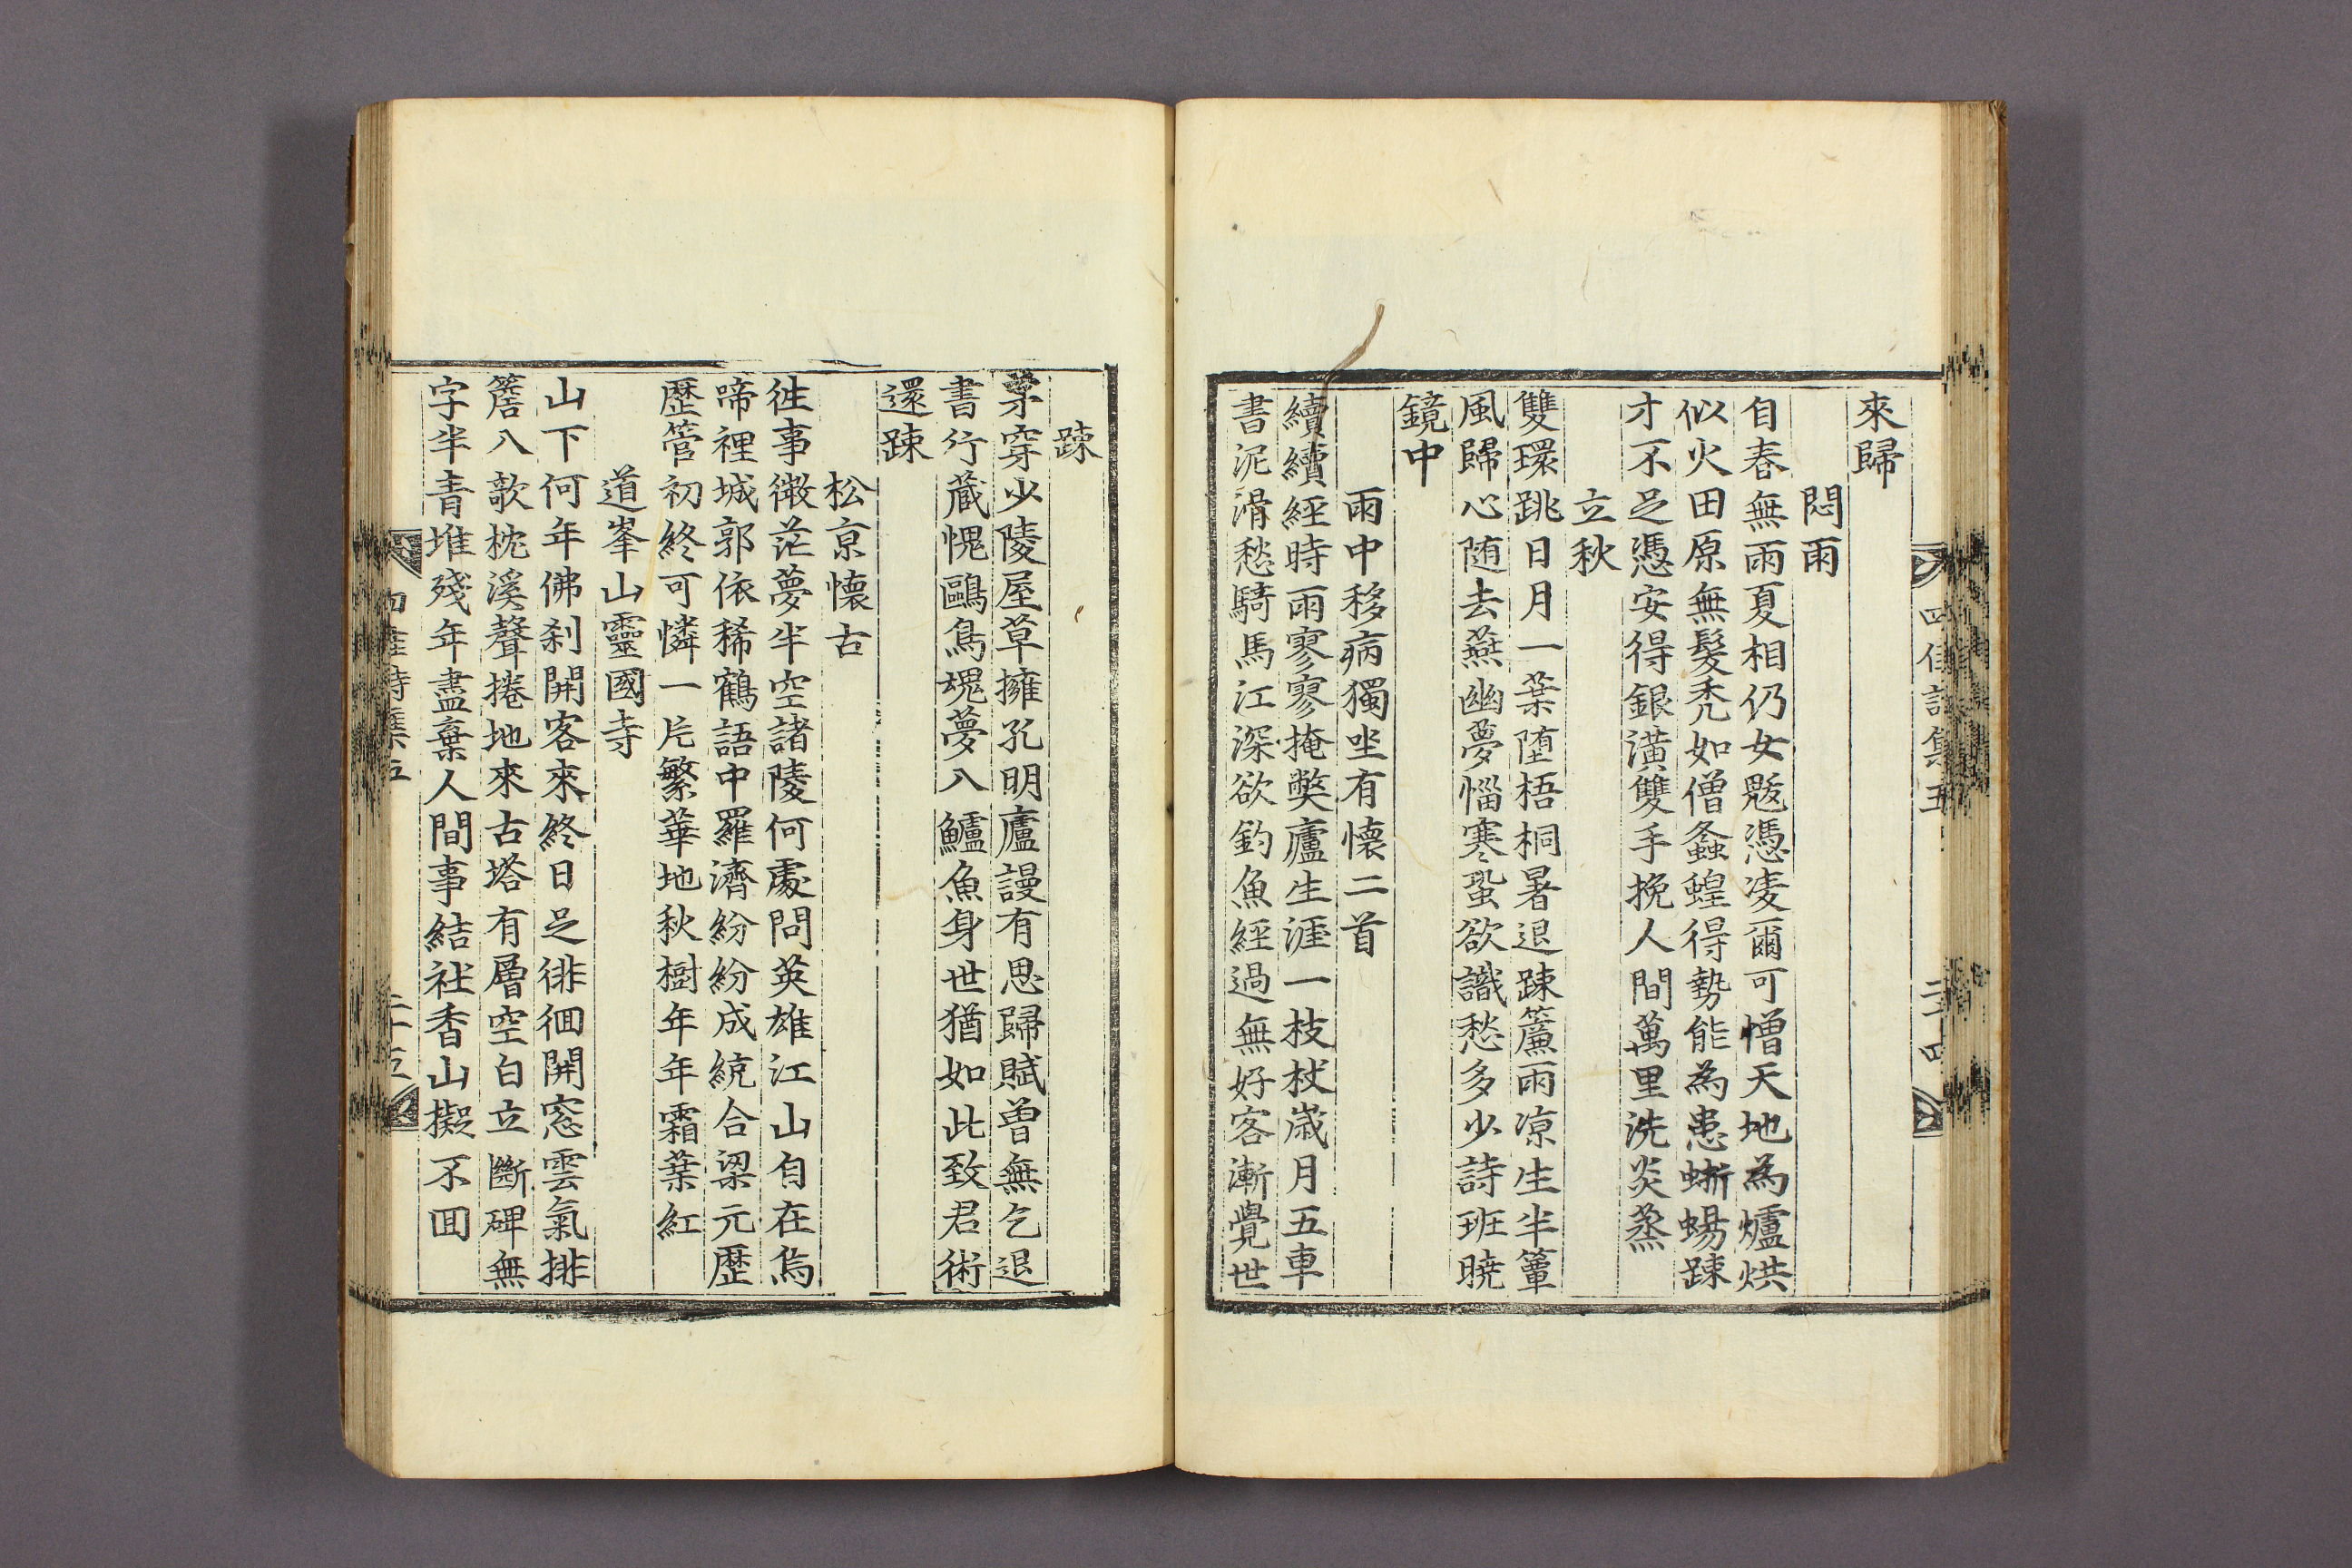 四佳詩集五
二十四
來歸
悶雨
自春無雨夏相仍女魃憑凌爾可憎天地為爐烘
似火田原無髮禿如僧螽蝗得勢能為患蜥蜴踈
才不足憑安得銀潢雙手挽人間萬里洗炎蒸
立秋
雙環跳日月一葉堕梧桐暑退踈簾雨凉生半簟
風歸心随去燕幽夢惱寒蛩欲識愁多少詩班曉
鏡中
雨中移病獨坐有懷二首
續續經時雨寥寥掩弊廬生涯一枝杖歳月五車
書泥滑愁騎馬江深欲釣魚經過無好客漸覺世
踈
茅穿少陵屋草擁孔明廬謾有思歸賦曽無乞退
書行藏愧鷗鳥魂夢入鱸魚身世猶如此致君術
還踈
松京懷古
徃事微茫夢半空諸陵何處問英雄江山自在烏
啼裡城郭依稀鶴語中羅濟紛紛成統合梁元歷
歷管初終可憐一片繁華地秋樹年年霜葉紅
道峯山靈國寺
山下何年佛刹開客來終日足徘徊開窓雲氣排
簷入欹枕溪聲捲地來古塔有層空白立斷碑無
字半青堆殘年盡棄人間事結社香山擬不囬